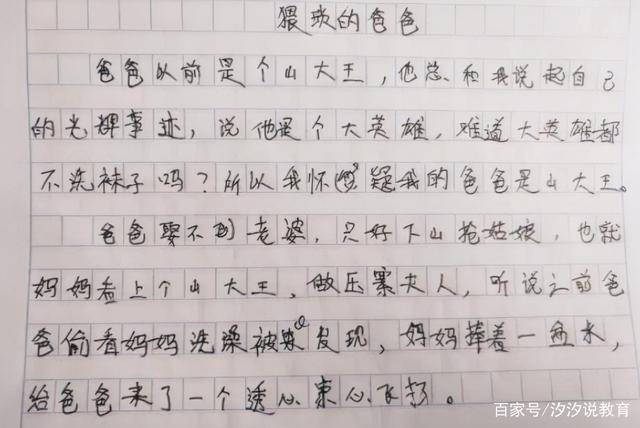 猥琐的爸爸
爸爸以前是个山大王，他总和我说起自己
的光辉事迹，说他是个大英雄，难道大英雄都
不洗袜子吗？所以我怀疑我的爸爸是山大王。
爸爸娶不到老婆，只好下山抢姑娘，也就
妈妈看上个山大王、做压寨夫人，听说之前爸
爸偷看妈妈洗澡被发现，妈妈捧着一盆水，
给爸爸来了一个透心束心飞扬。
百家号/汐汐说教育